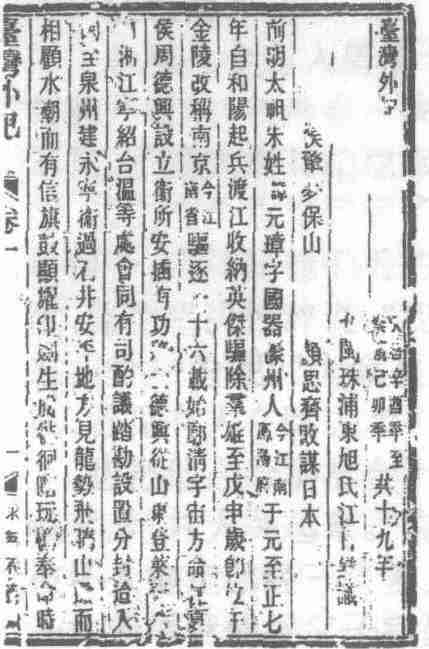 臺灣外記
辛酉年至
己卯年
共十九年
閩珠浦東旭氏江 識
侯驚夢保山 顏思齊敗謀日本
前明太祖朱姓諱元璋字國器濠州人今江南鳳陽府于元至正七
年自和陽起兵渡江收納英傑驅除羣雄至戊申歲卽位于
金陵改稱南京今江南省驅逐 十六載始 清宇宙方命 夏
侯周德興設立衛所安插有功 德興從山東登萊
浙江寧紹台溫等處會同有司酌議踏勘設置分封造入
至泉州建永寧衛過石井安平地方見龍勢飛騰山 而
相顧水潮而有信旗鼓顯耀印劍生成 徊 玩 奉命時
臺灣外記 卷一 一 求無不